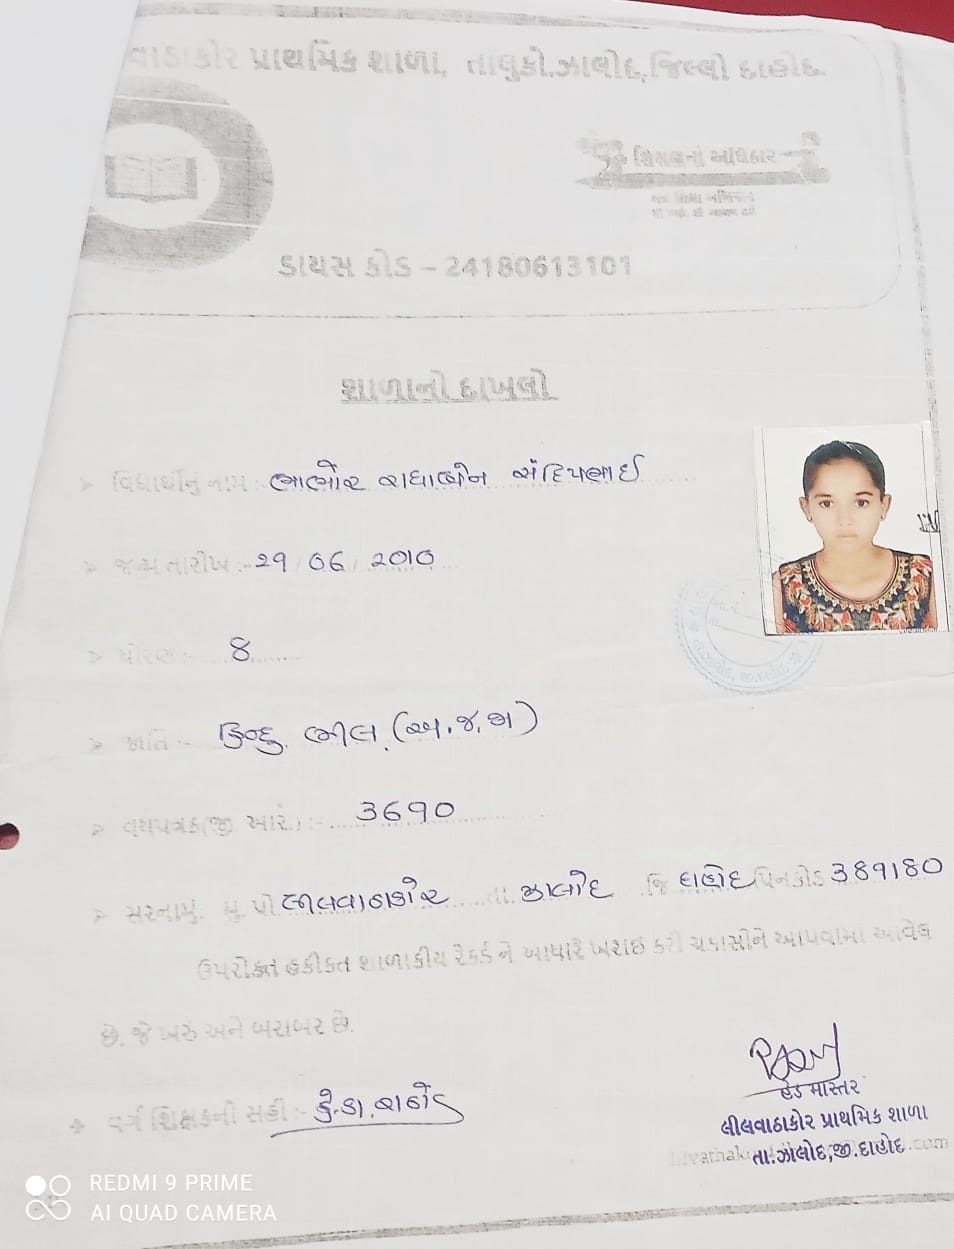 વાઠાકોર પ્રાથમિક શાળા, તાલુકો.ઝાલોદ,જિલ્લો દાહોદ
શિક્ષણનો અધિકાર
ડાયસ કોડ - 24180613101
શાળાનો દાખલો
➢ વિદ્યાર્થીનું નામ:- ભાભોર રાધાબેન સંદિપભાઈ
➢ જન્મ તારીખ :- 29/06/2010
➢ ધોરણ:- 8
➢ જાતિ :- હિન્દુ ભીલ (અ.જ.જા)
➢ વયપત્રક(જી આર):- 3690
➢ સરનામું: મુ. પો લીલવાઠાકોર તા. ઝાલોદ જિ દાહોદ પિનકોડ 389180
ઉપરોક્ત હકીકત શાળાકીય રેકર્ડ ને આધારે ખરાઇ કરી ચકાસીને આપવામાં આવેલ
છે. જે ખરુ અને બરાબર છે.
હેડ માસ્તર
➢ વર્ગ શિક્ષકની સહી :- કે.ડા.રાઠોડ
લીલવાઠાકોર પ્રાથમિક શાળા
તા.ઝાલોદ,જી.દાહોદ .com
REDMI 9 PRIME
AI QUAD CAMERA